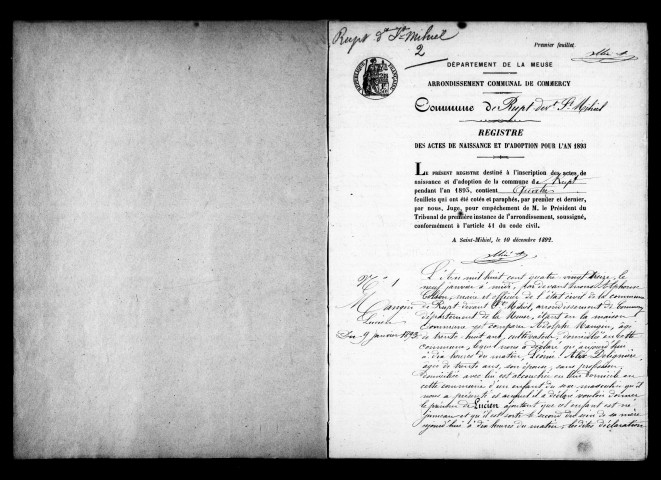 Rupt dt St Mihiel
2
Premier feuillet.
DÉPARTEMENT DE LA MEUSE
ARRONDISSEMENT COMMUNAL DE COMMERCY
Commune de Rupt devt St Mihiel
REGISTRE
DES ACTES DE NAISSANCE ET D'ADOPTION POUR L'AN 1893
LE PRÉSENT REGISTRE destiné à l'inscription des actes de
naissance et d'adoption de la commune de Rupt
pendant l'an 1893, contient
feuillets qui ont été cotés et paraphés, par premier et dernier,
par nous, Juge, pour empêchement de M. le Président du
Tribunal de première instance de l'arrondissement, soussigné,
conformément à l'article 41 du code civil.
A Saint-Mihiel, le 10 décembre 1892.
N° 1
Mangin
Lucien
Du 9 janvier 1893
L'An mil huit cent quatre-vingt treize, le
neuf janvier à midi, par devant nous Alphonse
maire et officier de l'état civil de la commune
de Rupt devant St Mihiel, arrondissement de Commercy
département de la Meuse, étant en la maison
Commune est comparu Adolphe Mangin, âgé
de trente huit ans, cultivateur, domicilié en cette
commune, lequel nous a déclaré que aujourd'hui
à dix heures du matin, Léonie Alix
âgée de trente ans, son épouse, sans profession,
domiciliée avec lui est accouchée en leur domicile en
cette commune d'un enfant du sexe masculin qu'il
nous a présenté et auquel il a déclaré vouloir donner
le prénom de Lucien ajoutant que cet enfant est né
jumeau et qu'il est sorti le second du sein de sa mère
aujourd'hui à dix heures du matin, lesdites déclaration